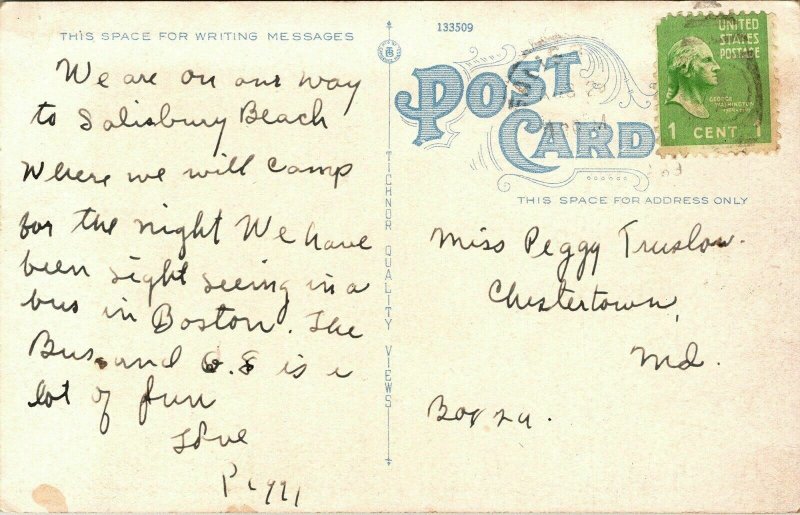 THIS SPACE FOR WRITING MESSAGES
We are on our way
to Salisbury Beach
Where we will camp
for the night We have
been sight seeing in a
bus in Boston. The
Bus and is
lot of fun
Love
133509
POST
CARD
UNITED
STATES
POSTAGE
GEORGE
WASHINGTON
1 CENT 1
THIS SPACE FOR ADDRESS ONLY
Miss Peggy Truslow.
Chestertown,
Md.
Box
TICHNOR QUALITY VIEWS